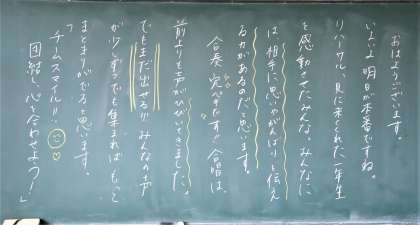 おはようございます。
いよいよ明日が本番ですね。
リハーサル、見に来てくれた一年生
を感動させたみんな、みんなに
は相手に思いやがんばりを伝え
る力があるのだと思います。
合長、完ぺきです!合唱は、
前よりも声がひびいてきました。
でもまだ出せる!!みんなの声
が少しずつでも集まれば、もっと
まとまりがでると思います。
「チームスマイル!!
団結し、心を合わせよう!」